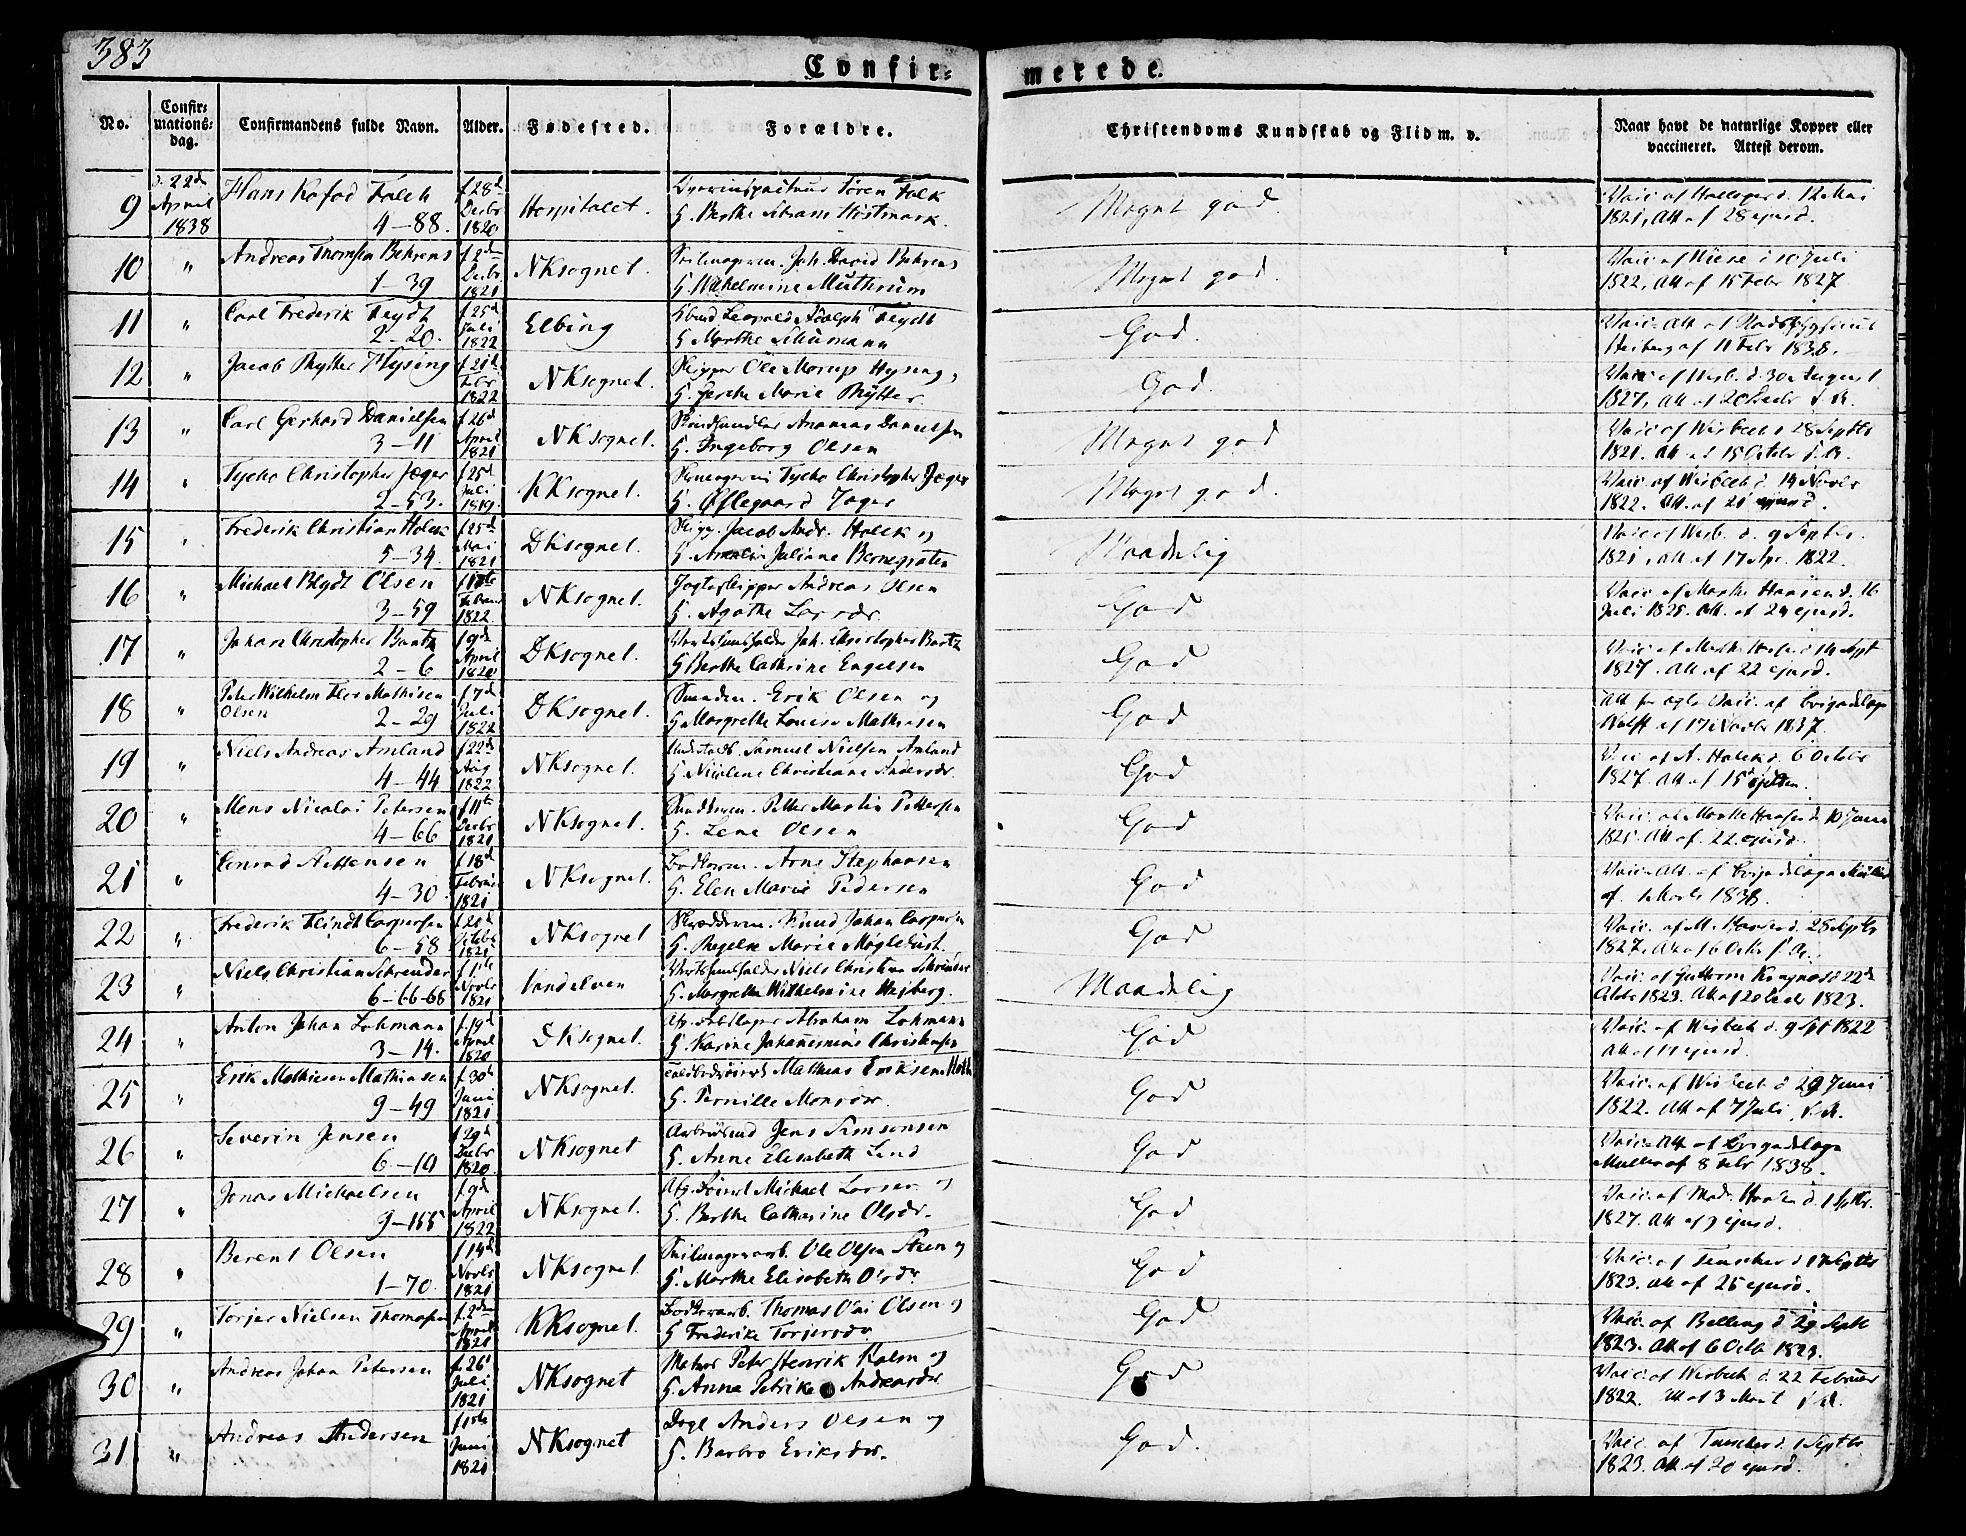 383
Confir-
merede.
No.
Confir-
mations-
dag.
Confirmandens fulde Navn.
Alder.
Fødested.
Forældre.
Christendoms Kundskab og Flid m. v.
Naar havt de naturlige Kopper eller
vaccineret. Attest derom.
9
d. 22de
April
1838
Hans Kofod Falck
4-88.
f 28d
Decbr
1820
Hospitalet.
Søren Falk
H. Berthe Hostmark.
Meget god.
Vacc. af 12 Mai
1821, Att af 28 ejusd.
10
"
Andreas Thomsen Behrens
1-39
f 2d
Decbr
1821
NKsognet.
Seilmagerm. Joh. David Behrens
H. Wilhelmine Muthrum
Meget god.
Vacc. af Wiese d 10 Juli
1822, Att af 15 Febr 1827
11
"
Carl Frederik Feydt
2-20.
f 25d
Juli
1822
Elbing
Leopold Adolph Feydt
H Marthe Schumann
God.
Vacc. Att af
Heiberg af 11 Febr 1838.
12
"
Jacob Rytter Hysing
f 21d
Febr
1822
NKsognet.
Skipper Ole Morup Hysing,
H. Marie Rytter
God.
Vacc af Wisb. d. 30 August
1827, Att af 20 Decbr s. A.
13
"
Carl Gerhard Danielsen
3-11
f 26d
April
1821
NKsognet.
Ananias Danielsen
H. Ingeborg Olsen
Meget god
Vacc. af Wisbech d 28 Septbr
1821. Att af 15 Octbr s. A.
14
"
Tycho Christopher Jæger
2-53.
f 25d
Juli
1819
KKsognet.
Tycho Christopher Jæger
H. Øllegaard Jæger
Meget god.
Vacc. af Wisbech d. 14 Novbr
1822. Att. af 21 ejusd.
15
"
Frederik Christian Holck
5-34.
f 25d
Mai
1821
DKsognet.
Skipp. Jacob Andr. Holck og
H. Amalia Juliane
Maadelig
Vacc af Wisb. d. 9 Septbr.
1821, Att af 17 Apr. 1822.
16
"
Michael Blydt Olsen
3-59
Februar
1822
NKsognet.
Jagteskipper Andreas Olsen
H. Agathe Larsdr.
God
Vacc af Marthe Haasen d. 16
Juli 1825. Att. af 24 ejusd.
17
"
Johan Christopher Bartz
2-6
f 9d
April
1820
DKsognet.
Vertshuusholder Joh. Christopher Bartz
H Berthe Cathrine Engelsen
God
14 Sept
1827. Att af 22 ejusd.
18
"
Peter Wilhelm Flor Mathisen
Olsen
2-29
f 7d
Juli
1822
DKsognet.
Erik Olsen og
H Margrethe Lovise Mathisen
God
Wulff af 17 Novbr 1837.
19
"
Niels Andreas Amland
4-44
f 22d
Aug
1822
NKsognet.
Samuel Nielsen Amland
H Nicoline Christiane Andersdr.
God
Vacc af A. Holck d. 6 Octbr
1827. Att af 15d
20
"
Mons Nicolai Petersen
4-66
f 11te
Decbr
1821
NKsognet.
Petter Martin Pettersen
H. Lene Olsen
God
Vacc. af Marthe Haasen d 10 Juni
1825. Att af 22 ejusd.
21
"
Conrad
4-30.
f 18d
Februar
1821
NKsognet.
Bødkerm. Arne Stephansen
H. Elen Marie Pedersen
God
Vacc. Att. af Brigadelæge Müller
af 1 Marts 1838.
22
"
Frederik Flindt Caspersen
6-58
f 20d
Octobr
1821
NKsognet
Skrædderm. Knud Johan Caspersen
H. Ragele Marie Møglebust.
God
Vacc. af M. Haasen d. 25 Septbr
1827. Att af 6 Octbr s. A.
23
"
Niels Christian Schrøuder
6-66-68
f 1te
Novbr
1821
Vandelven
Vertshuusholder Niels Christian
H. Margrethe Wilhelmine Heiberg.
Maadelig
Vacc. af Guttorm d 22d
Octbr 1823. Att af 20 Decbr 1823.
24
"
Anton Johan Lohmann
3-14.
f. 19d
April
1820
DKsognet.
Abraham Lohmann
H. Karine Johannesmine Christensen
God
Vacc. af Wisbech d. 9 Spt 1822
Att af 14 ejusd.
25
"
Erik Mathiesen Mathiesen
9-49
f. 30d
Juni
1821
NKsognet.
Mathias Eriksen Moth
H. Pernille Monsdr.
God
Vacc. af Wisbech d 29 Juni
1822. Att af 7 Juli s. A.
26
"
Severin Jensen
6-10
f 29d
Decbr
1820
NKsognet
Jens Simonsen
H. Anne Elisabeth Lund
God
Vacc. Att af Brigadelæge
Müller af 8 Febr 1838.
27
"
Jonas Michaelsen
9-155
f. 9d
April
1822
NKsognet.
Afg. Michael Larsen og
H. Berthe Catharine Olsdr.
God
Vacc. af Mad. Haasen d. 1 Septbr.
1827. Att af 9 ejusd.
28
"
Berent Olsen
1-70.
f 14d
Novbr
1821
NKsognet.
Seilmagerarb. Ole Olsen Steen og
H. Marthe Elisabeth Olsdr
God
Vacc. af Tuscher d 17 Septbr
1823. Att af 25 ejusd.
29
"
Torjer Nielsen Thomasen
f. 2den
April
1821
KKsognet.
Bødkerarb. Thomas Olai Olsen og
H Frederike Torjersdr
God
Vacc. af Belling d 29 Septb
1823. Att af 6 Octb 1823.
30
"
Andreas Johan Petersen
f. 26d
Juli
1821
NKsognet
Matros Peter Henrik Holm og
H. Anne Petrike Andersdr
God
Vacc. af Wisbech d 22 Februar
1822. Att af 3 Mart s. A.
31
"
Andreas Andersen
Juni
1821
NKsognet
Anders Olsen og
H. Barbro Eriksdr.
God.
Vacc. af Tuscher d. 1 Septbr
1823. Att. af 20 ejusd.